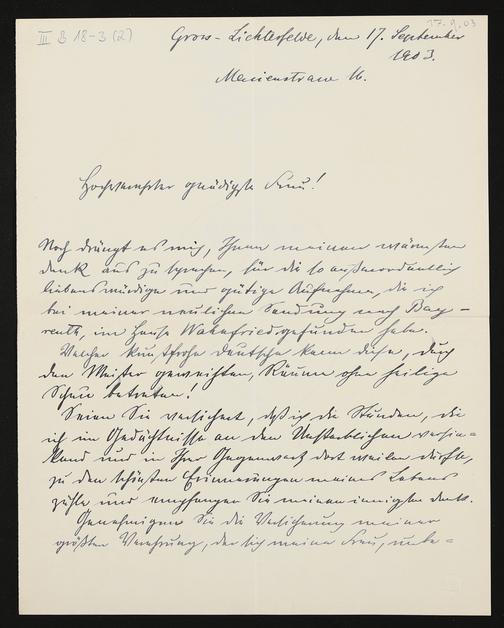 III B 18-3 (2)
17.9.03
Gross-Lichterfelde, den 17. September
1903.
Marienstrasse 16.
Hochverehrte gnädigste Frau!
Noch drängt es mich, Ihnen meinen wärmsten
Dank aus zu sprechen, für die so außerordentlich
liebenswürdige und gütige Aufnahme, die ich
bei meiner neulichen Sendung nach Bay-
reuth, im Hause Wahnfried gefunden habe.
Welcher kunstfrohe Deutsche kann diese, durch
den Meister geweihten, Räume ohne heilige
Scheu betreten!
Seien Sie versichert, daß ich die Stunden, die
ich im Gedächtnisse an den Unsterblichen
und in Ihrer Gegenwart dort weilen durfte,
zu den schönsten Erinnerungen meines Lebens
zähle und empfangen Sie meinen innigsten Dank.
Genehmigen Sie die Versicherung meiner
größten Verehrung, der sich meine Frau, unbe=